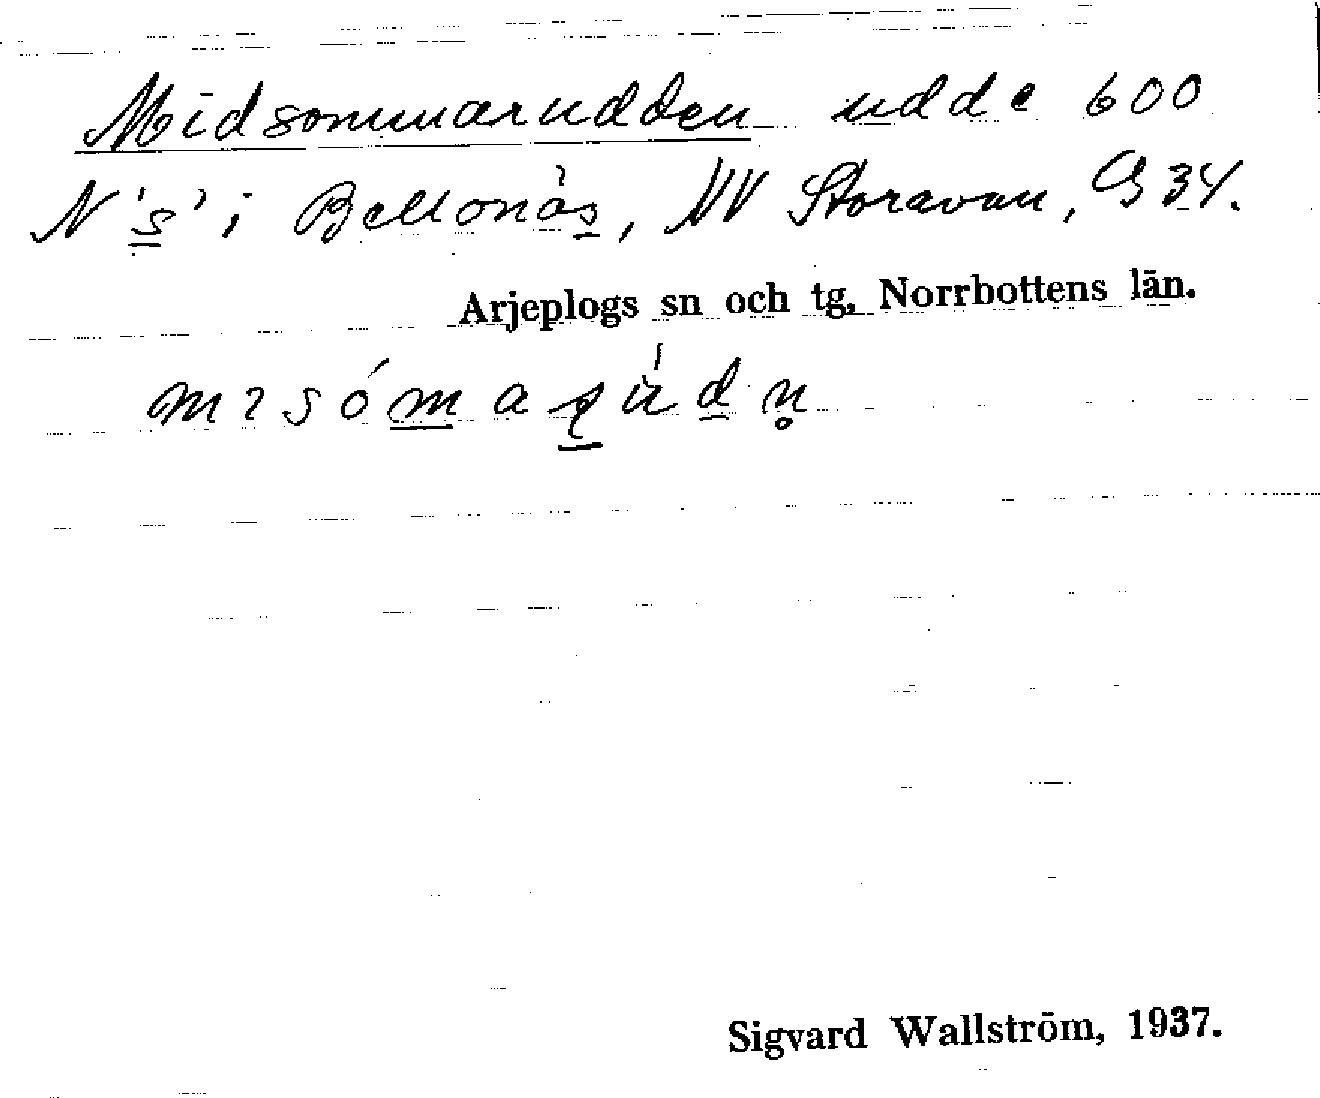 Midsommarudden udde 600
N 's' i Bellonäs, NV Storavan, G 34.
Arjeplogs sn och tg, Norrbottens län.
Sigvard Wallström, 1937.